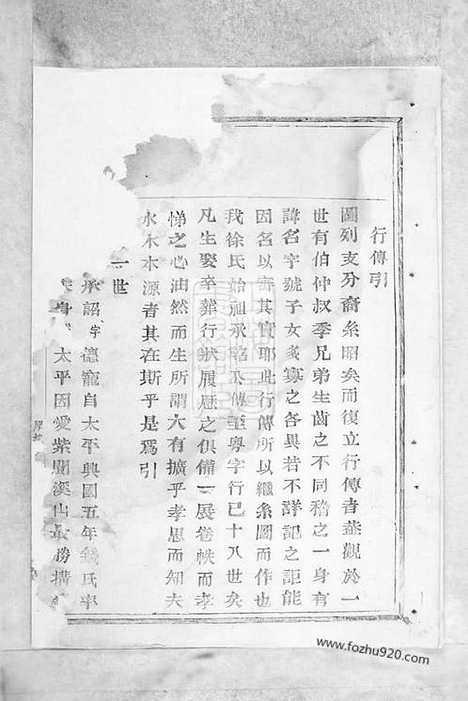 行傳引
圖列支分裔系昭矣而復立行傳者葢觀於一
世有伯仲叔季兄弟生齒之不同稽之一身有
諱名字號子女多寡之各異若不詳記之詎能
因名以責其實耶此行傳所以繼系圖而作也
我徐氏始祖承詔公傳至粵字行已十八世矣
凡生娶卒葬行狀履歷之俱備一展卷帙而孝
悌之心油然而生所謂大有擴乎孝思而知夫
水木本源者其在斯乎是爲引
一世
承詔 字德寵自太平興國五年錢氏率
太平因愛紫閬溪山之勝
www.fozhu920.com